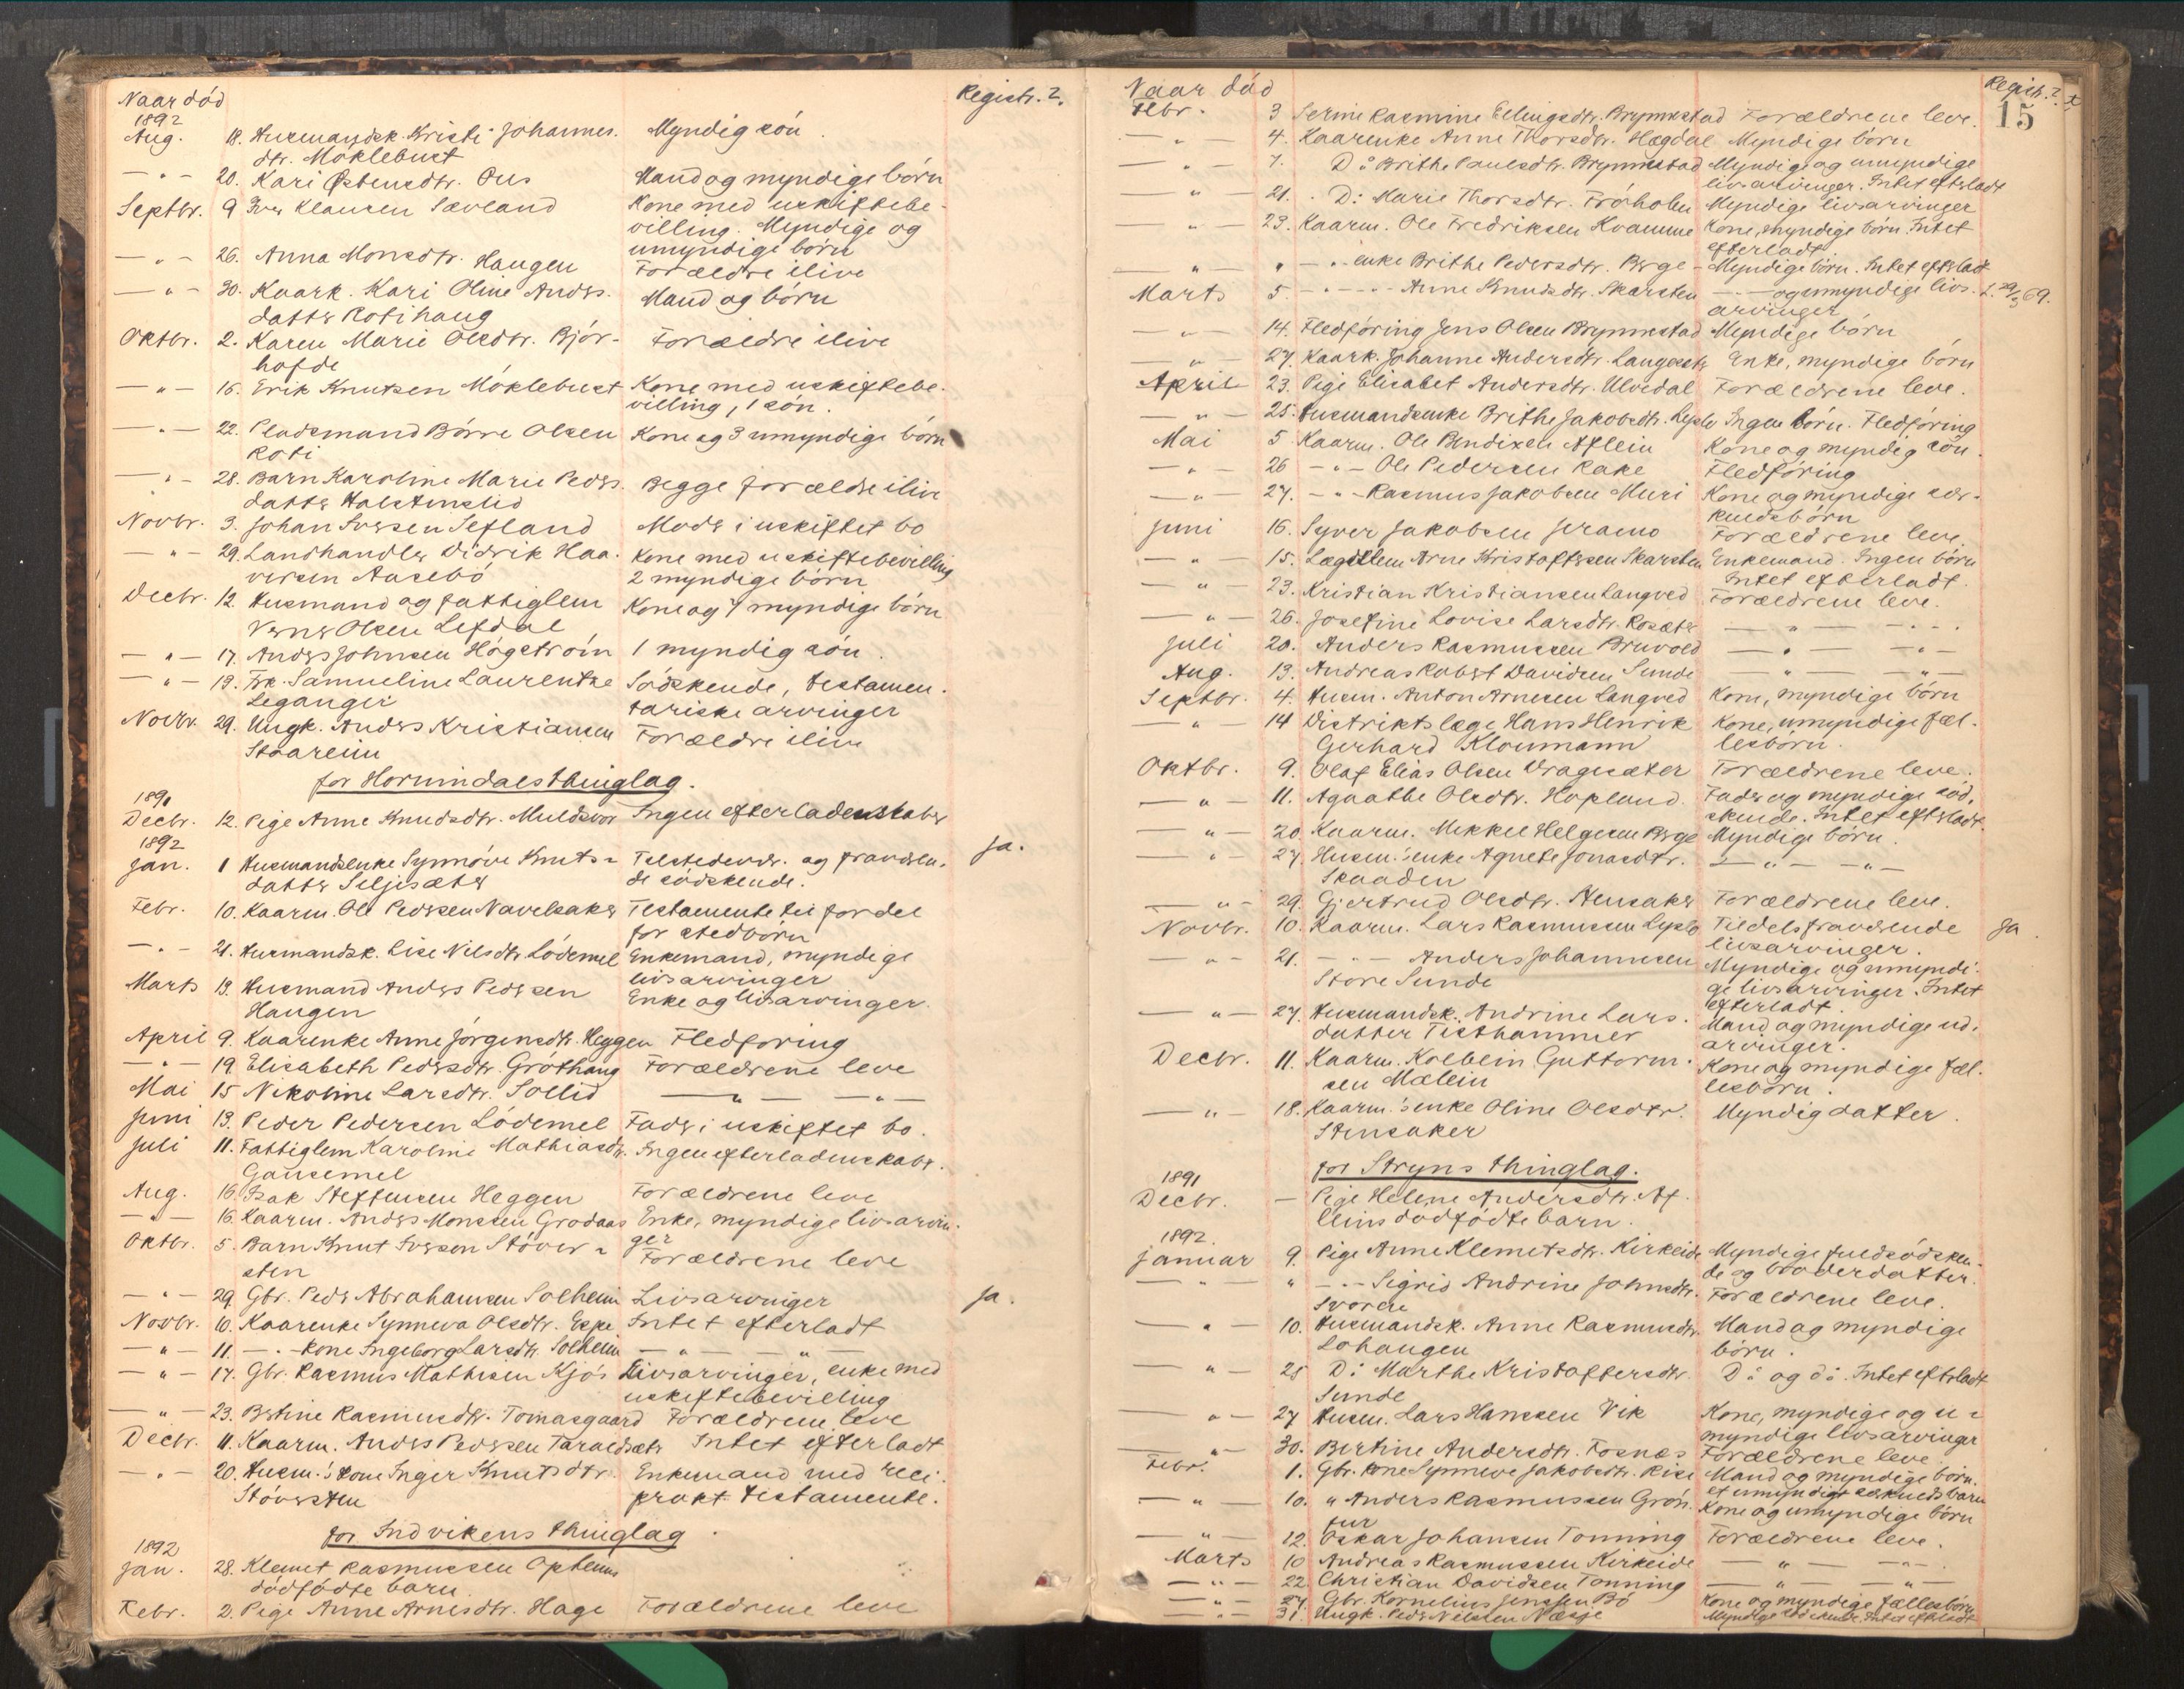 Naar död
Registr. ?
1892
Aug. 18. Husmandsk. Kristi Johannes- Myndig sön.
dtr. Möklebust
— " — 20. Kari Östensdtr. Ous Mand og myndige börn
Septbr. 9 Iver Klausen Sævland Kone med uskiftebe-
villing. Myndige og
umyndige börn
— " — 26. Anna Monsdtr. Haugen Forældre ilive
— " — 30. Kaark. Kari Oline Anders- Mand og börn
datter Rotihaug
Oktbr. 2. Karen Marie Olsdtr. Björ- Forældre ilive
hofde
— " — 16. Erik Knutsen Möklebust Kone med uskiftebe-
villing, 1 sön.
— " — 22. Pladsmand Börre Olsen Kone og 3 umyndige börn
Roti
— " — 28. Barn Karoline Marie Peders- Begge forældre ilive
datter Halstenslid
Novbr. 3. Johan Iversen Sefland Moder i uskiftet bo
— " — 29. Landhandler Didrik Haa- Kone med uskiftebevilling
versen Aasebö 2 myndige börn
Decbr. 12. Husmand og fattiglem Kone og 4 myndige börn
Verner Olsen Lefdal
— " — 17. Anders Johnsen Högström 1 myndig sön.
— " — 19. Frk. Samueline Laurentze Södskende, testamen-
Leganger tariske arvinger
Novbr. 29. Ungk. Anders Kristiansen Forældre ilive
Staareim
for Hornindals thinglag.
1891
Decbr. 12. Pige Anne Knudsdtr. Muldsvor Ingen efterladenskaber
1892
Jan. 1 Husmandsenke Synnöve Knuts- Tilstedevær. og fraværen- Ja.
datter Seljesæter de södskende.
Febr. 10. Kaarm. Ole Pedersen Navelsaker Testamente til fordel
for stedbörn
— " — 21. Husmandsk. Lise Nilsdtr. Lödemel Enkemand, myndige
livsarvinger
Marts 19. Husmand Anders Pedersen Enke og livsarvinger.
Haugen
April 9. Kaarenke Anne Jörgensdtr. Heggen Fledföring
— " — 19. Elisabeth Pedersdtr. Gröthaug Forældrene leve
Mai 15 Nikoline Larsdtr. Sollid — " — — " —
Juni 13. Peder Pedersen Lödemel Fader i uskiftet bo.
Juli 11. Fattiglem Karoline Mathiasdtr. Ingen efterladenskaber.
Gausemel
Aug. 16. Isak Steffensen Heggen Forældrene leve
— " — 16. Kaarm. Anders Monssen Grodaas Enke, myndige livsarvin-
ger
Oktbr. 5. Barn Knut Iversen Stöver- Forældrene leve
sten
— " — 29. Gbr. Peder Abrahamsen Solheim Livsarvinger Ja.
Novbr. 10. Kaarenke Synneva Olsdtr. Espe Intet efterladt
— " — 11. — " — kone Ingeborg Larsdtr. Solheim — " — "
— " — 17. Gbr. Rasmus Mathisen Kjös Livsarvinger, enke med
uskiftebevilling
— " — 23. Bertine Rasmusdtr. Tomasgaard Forældrene leve
Decbr. 11. Kaarm. Anders Pedersen Taraldsæter Intet efterladt
— " — 20. Husm.'s kone Inger Knutsdtr. Enkemand med reci-
Stöversten prokt testamente.
for Indvikens thinglag.
1892
Jan. 28. Klemet Rasmussen Opheims
dödfödte barn.
Febr. 2. Pige Anne Arnesdtr. Hage Forældrene leve
Naar död
Registr. ?
15
Febr. 3 Serine Rasmine Ellingsdtr. Brynnestad Forældrene leve.
— " — 4. Kaarenke Anne Thorsdtr. Hægdal Myndige börn
— " — 7. Do Brithe Paulsdtr. Brynnestad Myndige og umyndige
livsarvinger. Intet efterladt
— " — 21. Do Marie Thorsdtr. Fröholm Myndige livsarvinger
— " — 23. Kaarm. Ole Fredriksen Kvamme Kone, myndige börn. Intet
efterladt.
" " — " — enke Brithe Pedersdtr. Berge Myndige börn. Intet efterladt
Marts 5. — " — Anne Knudsdtr. Skarsten — " — og umyndige livs-
arvinger
— " — 14. Fledföring Jens Olsen Brynnestad Myndige börn
— " — 27. Kaark. Johanne Andersdtr. Langesæter Enke, myndige börn
April 23. Pige Elisabet Andersdtr. Ulvedal Forældrene leve.
— " — 25. Husmandsenke Brithe Jakobsdtr. Lyslo Ingen börn. Fledföring
Mai 5 Kaarm. Ole Bendixen Aflein Kone og myndig sön.
— " — 26 — " — Ole Pedersen Rake Fledföring
— " — 27. — " — Rasmus Jakobsen Muri Kone og myndige sær-
kuldsbörn
Juni 16. Syver Jakobsen Seramo Forældrene leve.
— " — 15. Lægdslem Arne Kristoffersen Skarsten Enkemand. Ingen börn
Intet efterladt.
— " — 23. Kristian Kristiansen Langved Forældrene leve.
— " — 26. Josefine Lovise Larsdtr. Rosæter — " — — " —
Juli 20. Anders Rasmussen Bruvold — " — — " —
Aug. 13. Andreas Robert Davidsen Sunde " — " —
Septbr. 4. Husm. Anton Arnesen Langved Kone, myndige börn
— " — 14 Distriktslæge Hans Henrik Kone, umyndige fæl-
Gerhard Kloumann lesbörn.
Oktbr. 9. Olaf Elias Olsen Dragesæter Forældrene leve.
— " — 11. Agaathe Olsdtr. Hopland. Fader og myndige söd-
skende. Intet efterladt.
— " — 20. Kaarm. Mikkel Helgesen Berge Myndige börn.
— " — 27. Husm.'s enke Agnete Jonasdtr. — " — "
Skaaden
— " — 29. Gjertrud Olsdtr. Stensaker Forældrene leve.
Novbr. 10. Kaarm. Lars Rasmussen Lyslo Tildels fraværende Ja.
livsarvinger.
— " — 21. — " — Anders Johannesen Myndige og umyndi-
Store Sunde ge livsarvinger. Intet
efterladt.
— " — 27. Husmandsk. Andrine Lars- Mand og myndige ud-
datter Tisthammer arvinger.
Decbr. 11. Kaarm. Kolbein Guttorm- Kone og myndige fæl-
sen Mælein lesbörn.
— " — 18. Kaarm.'s enke Oline Olsdtr. Myndig datter.
Stensaker
for Stryns thinglag.
1891
Decbr. — Pige Helene Andersdtr. Af-
leins dödfödte barn.
1892.
Januar 9. Pige Anne Klemetsdtr. Kirkeide Myndige fuldsödsken-
de og broderdatter.
— " — " — " — Sigrid Andrine Johnsdtr. Forældrene leve.
Svoren
— " — 10. Husmandsk. Anne Rasmusdtr. Mand og myndige
Lohaugen börn.
— " — 25 Do Marthe Kristoffersdtr. Do og do. Intet efterladt
Sunde
— " — 27 Husm. Lars Hanssen Vik Kone, myndige og u-
myndige livsarvinger
— " — 30. Bertine Andersdtr. Fosnæs Forældrene leve.
Febr. 1. Gbr. kone Synneve Jakobsdtr. Rise Mand og myndige börn.
et umyndigt særkuldsbarn
— " — 10. " Anders Rasmussen Grön- Kone og umyndige börn
fur
— " — 12. Oskar Johansen Tonning Forældrene leve.
Marts 10 Andreas Rasmussen Kirkeide — " — — " —
— " — 22. Christian Davidsen Tonning — " — — " —
— " — 27. Gbr. Kornelius Jenssen Bö Kone og myndige fællesbörn
— " — 31. Ungk. Peder Nilssen Næsje Myndige södskende. Intet efterladt